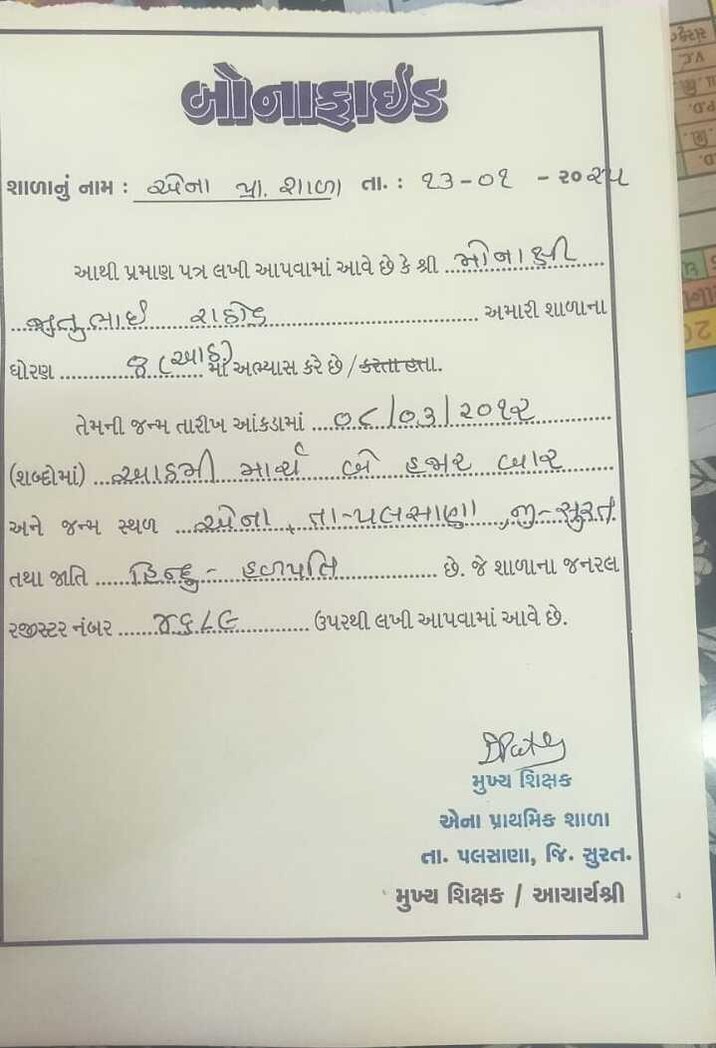 બોનાફાઈડ
શાળાનું નામ : એના પ્રા. શાળા તા. : ૧૩-૦૧ - ૨૦૨૫
આથી પ્રમાણ પત્ર લખી આપવામાં આવે છે કે શ્રી મોનાક્ષી
જીતુભાઈ રાઠોડ અમારી શાળાના
ધોરણ ૮ (આઠ) માં અભ્યાસ કરે છે / કરતા હતા.
તેમની જન્મ તારીખ આંકડામાં ૦૮/૦૩/૨૦૧૨
(શબ્દોમાં) આઠમી માર્ચ બે હજાર બાર
અને જન્મ સ્થળ એના, તા-પલસાણા, જી-સુરત
તથા જાતિ હિન્દુ - હળપતિ છે. જે શાળાના જનરલ
રજીસ્ટર નંબર ૪૬૮૯ ઉપરથી લખી આપવામાં આવે છે.
મુખ્ય શિક્ષક
એના પ્રાથમિક શાળા
તા. પલસાણા, જિ. સુરત.
મુખ્ય શિક્ષક / આચાર્યશ્રી